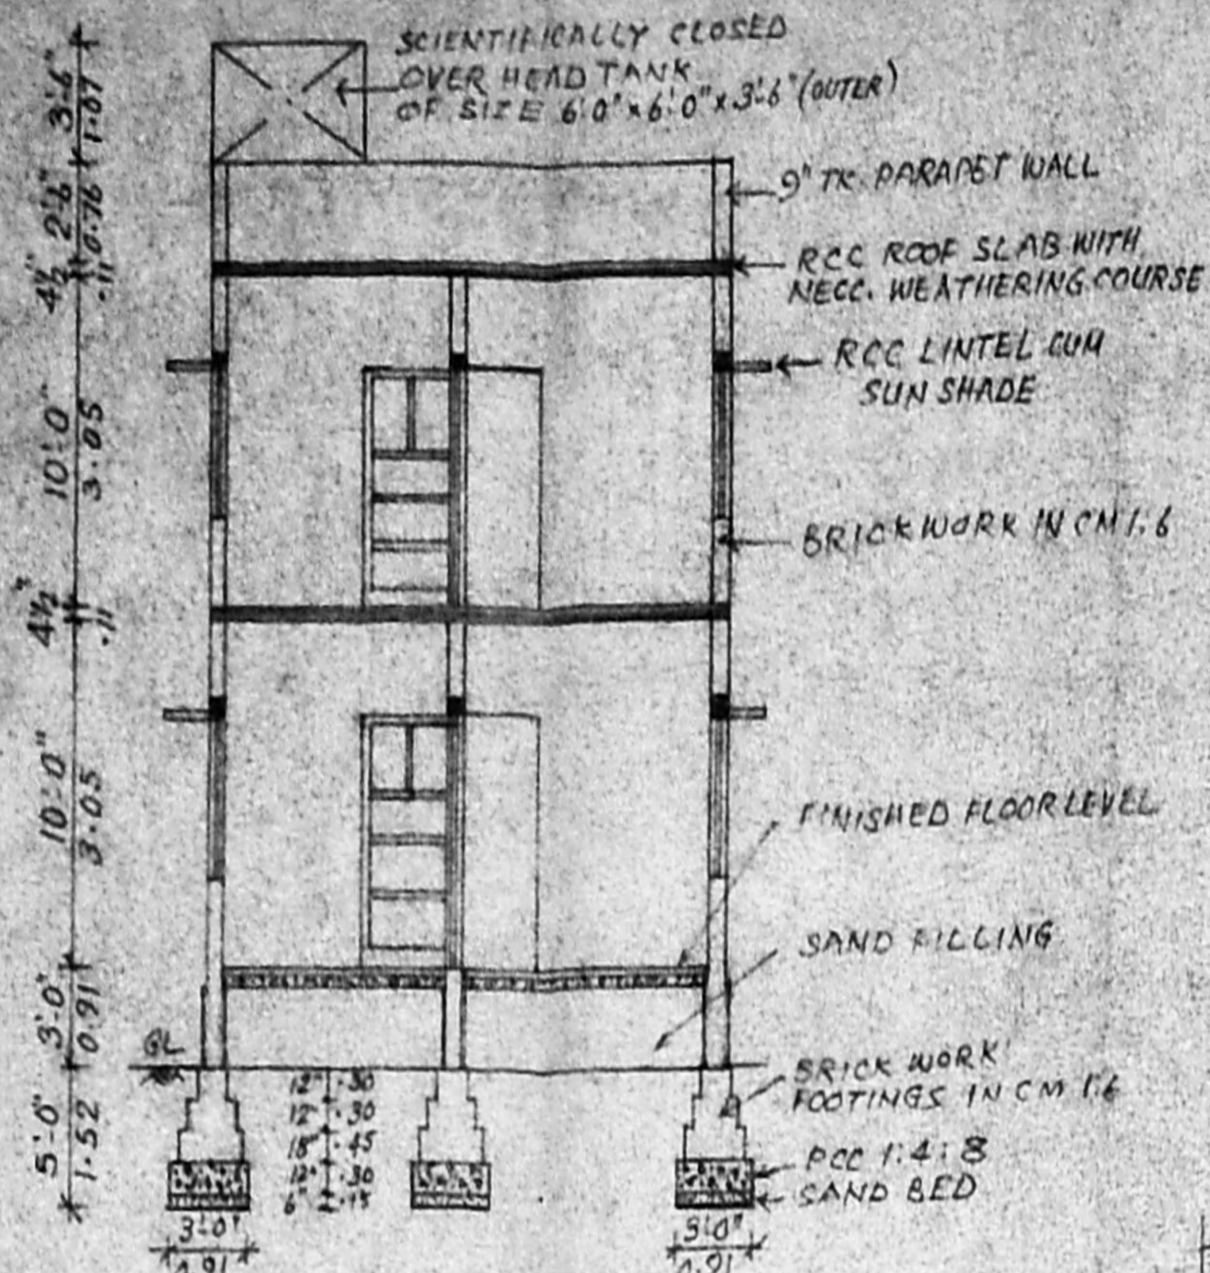 SCIENTIFICALLY CLOSED
OVER HEAD TANK
OF SIZE 6'.0" x 6'.0" x 3'.6" (OUTER)
9" TK. PARAPET WALL
RCC ROOF SLAB WITH
NECC. WEATHERING COURSE
RCC LINTEL CUM
SUN SHADE
BRICKWORK IN CM 1:6
FINISHED FLOOR LEVEL
SAND FILLING
BRICK WORK
FOOTINGS IN CM 1:6
PCC 1:4:8
SAND BED
3'.6"
1.07
2'.6"
0.76
4½"
.11
10'.0"
3.05
4½"
.11
10'.0"
3.05
3'.0"
0.91
5'.0"
1.52
GL
12" .30
12" .30
18" .45
12" .30
6" .15
3'.0"
0.91
3'.0"
0.91